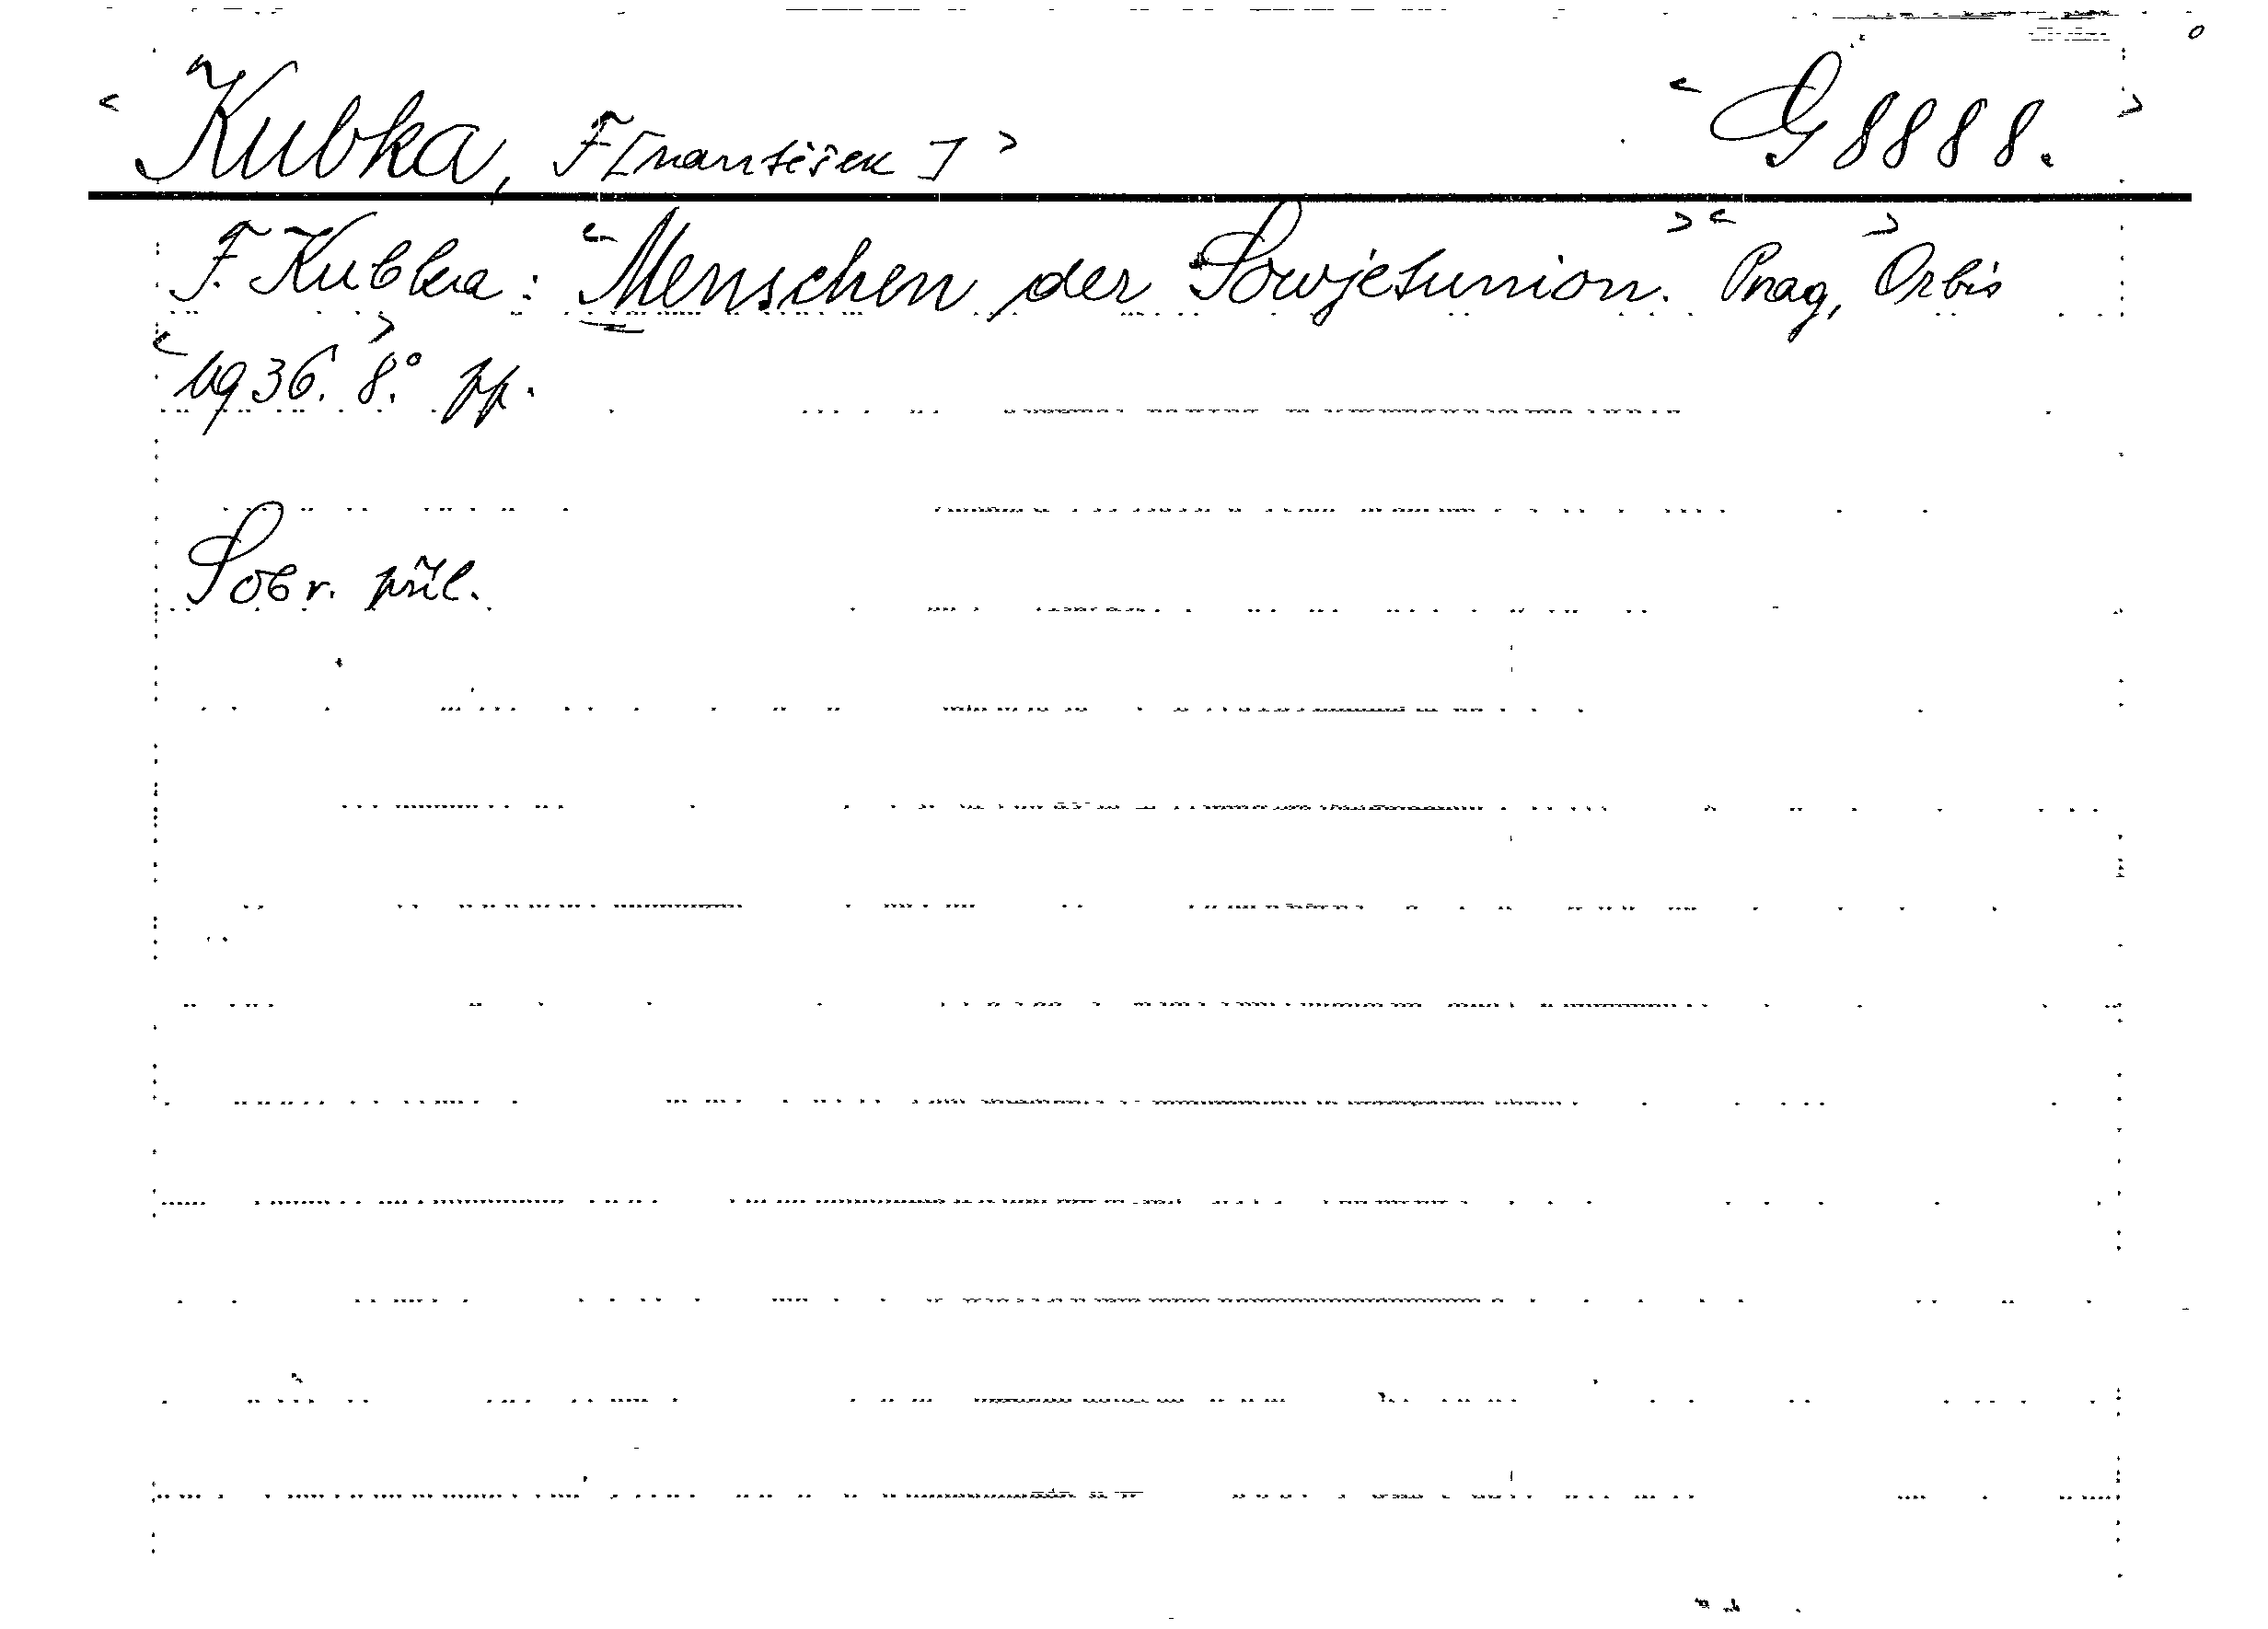 < Kubka, F[rantišek] > < G 8888. >
F. Kubka: < Menschen der Sowjetunion. > < Prag, > Orbis
< 1936. > 8.° pp.
Sobr. příl.